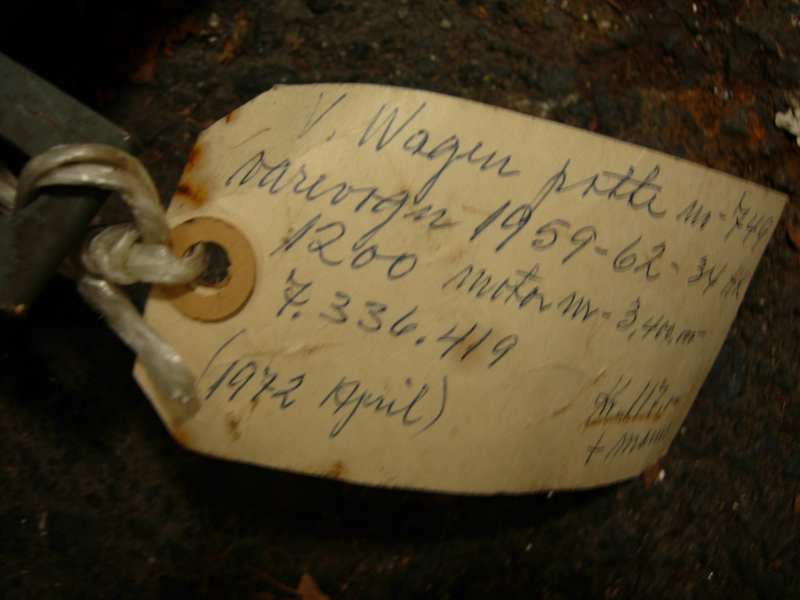 V. Wagen potte nr-749
varevogn 1959-62-34 HK
1200 motor nr-3,400,000
7.336.419
(1972 April)
Kr. 1170-
+ moms